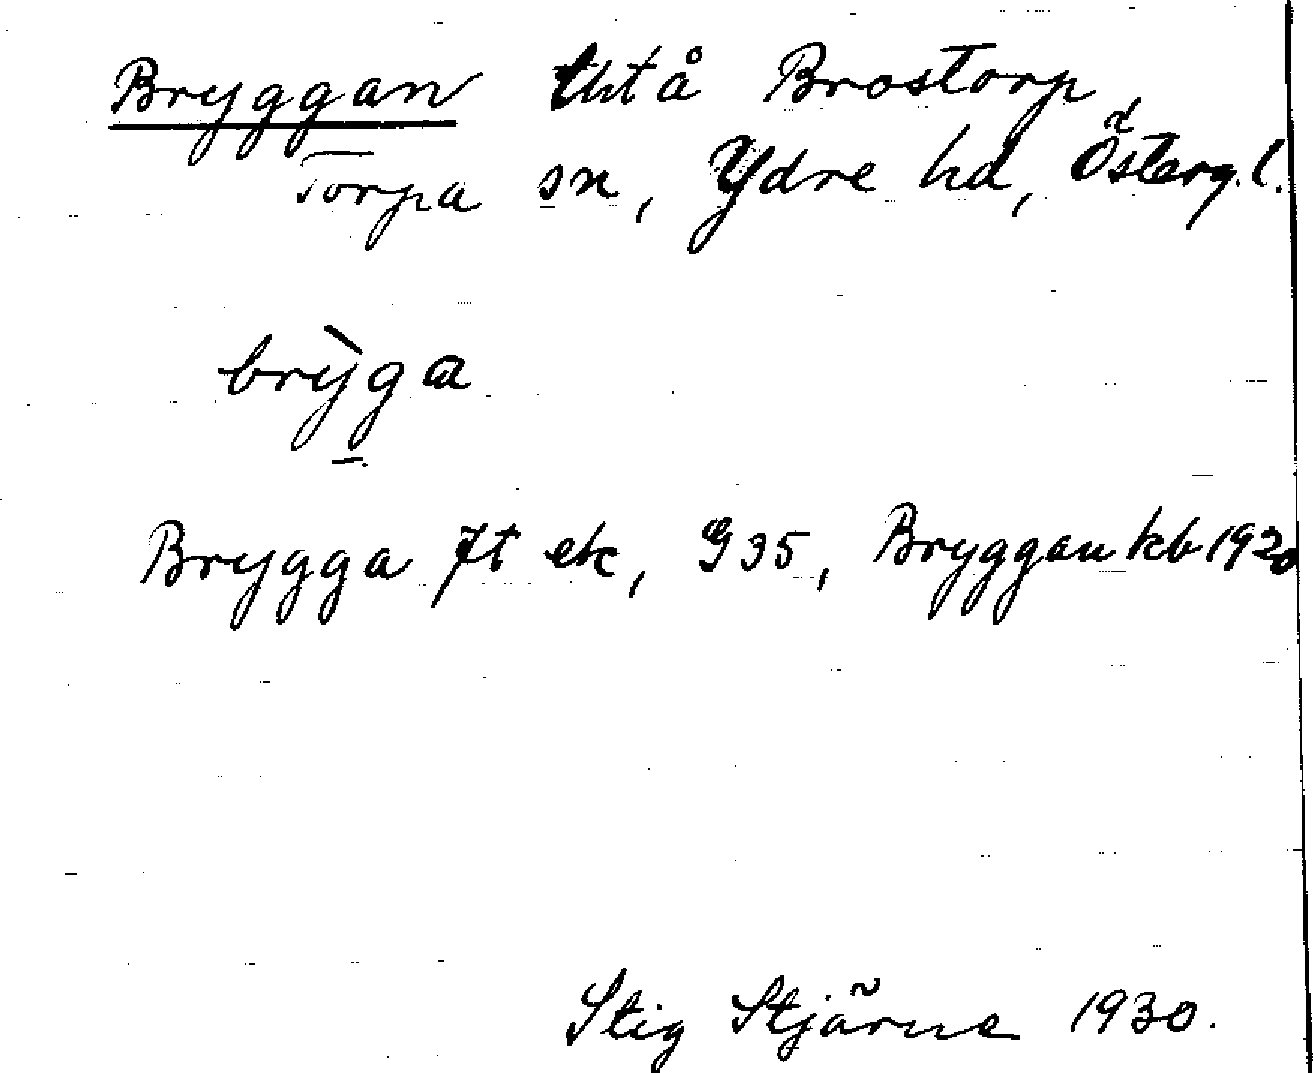 Bryggan tht å Brostorp,
Torpa sn, Ydre hd, Österg. l.
brỳg̱a
Brygga Jt ek, G 35, Bryggan kb 1920
Stig Stjärne 1930.